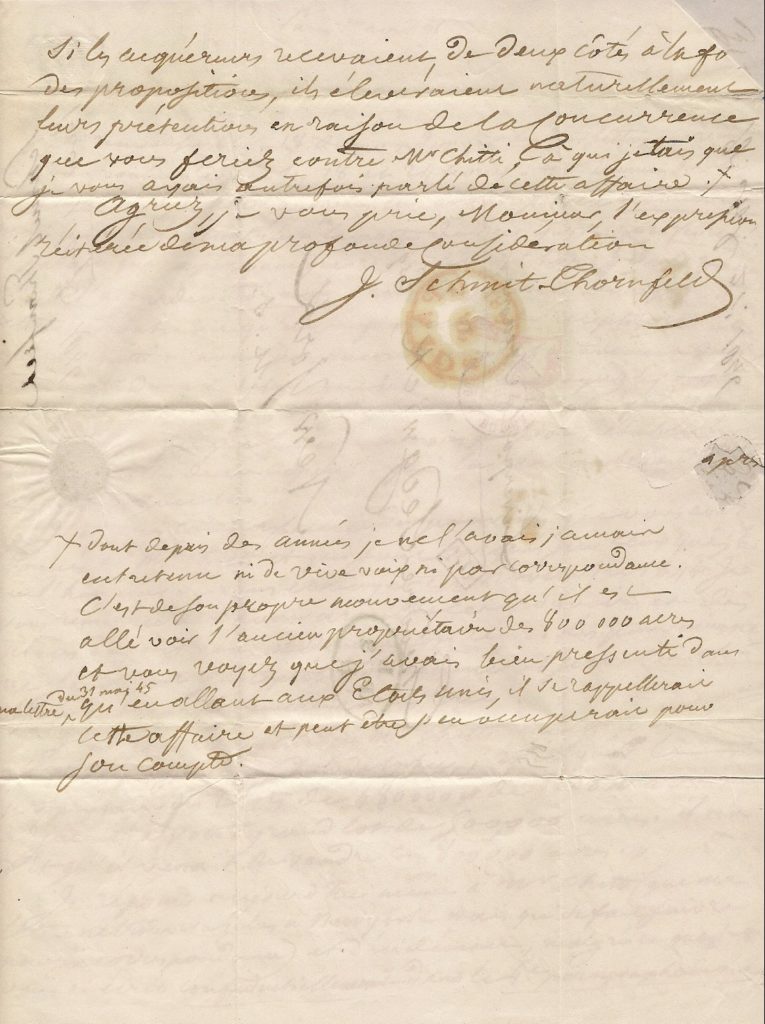 Si les acquéreurs recevaient, de deux côtés à la fo
des propositions, ils éleveraient naturellement
leurs prétentions en raison de la Concurrence
que vous feriez contre Mr Chitti, à qui
je vous avais autrefois parlé de cette affaire. +
Agréez, je vous prie, Monsieur, l'expression
réitérée de ma profonde Considération
J. Schmit-Thornfeld
après
+ dont depuis des années je ne l'avais jamais
entretenu ni de vive voix ni par correspondance.
C'est de son propre mouvement qu'il est
allé voir l'ancien propriétaire des 800 000 acres
et vous voyez que j'avais bien pressenti dans
ma lettre du 31 may 45 qu'en allant aux Etats Unis, il se rappellerait
cette affaire et peut être s'en occuperait pour
son compte.